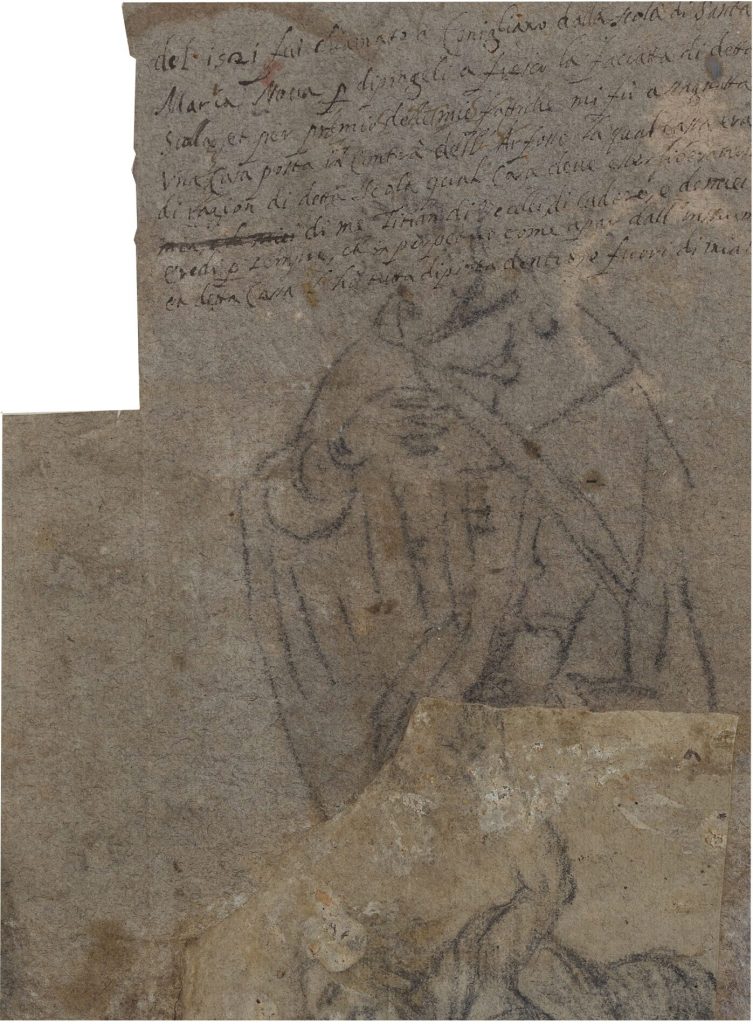 del 1521 fui chiamato à Conigliano dalla scola di Santa
Maria Nova p dipingeli a fresco la faciata di detta
Scolla et per premio delle mie fattiche mi fù asegnatta
Una Casa posta in Contrà dell' qual casa era
di ragion di detta Scola qual Casa deve esser
di me Titian di Vecelj di Cadore, e de miei
eredi p sempre, et in perpetuo come apar dall'
et detta Casa l'hò tutta dipinta dentro, e fuori di mia